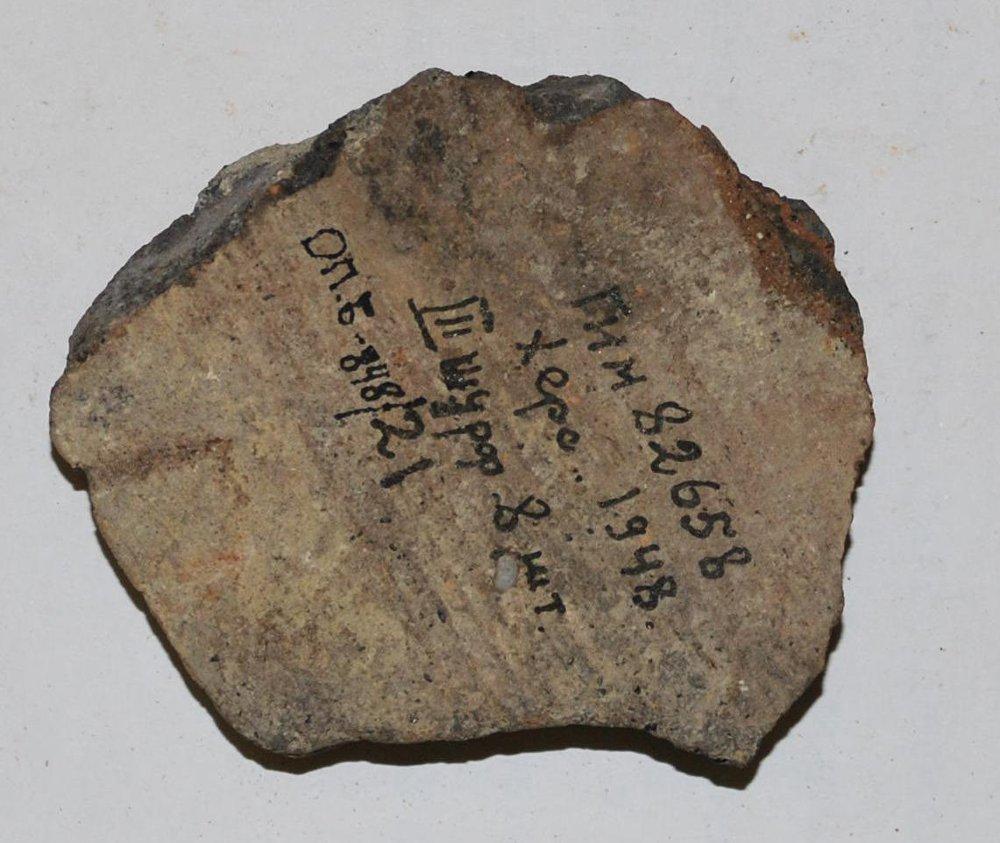 ГИМ 82658
Херс. 1948.
III шурф 8 шт.
ОП. Б-848/21